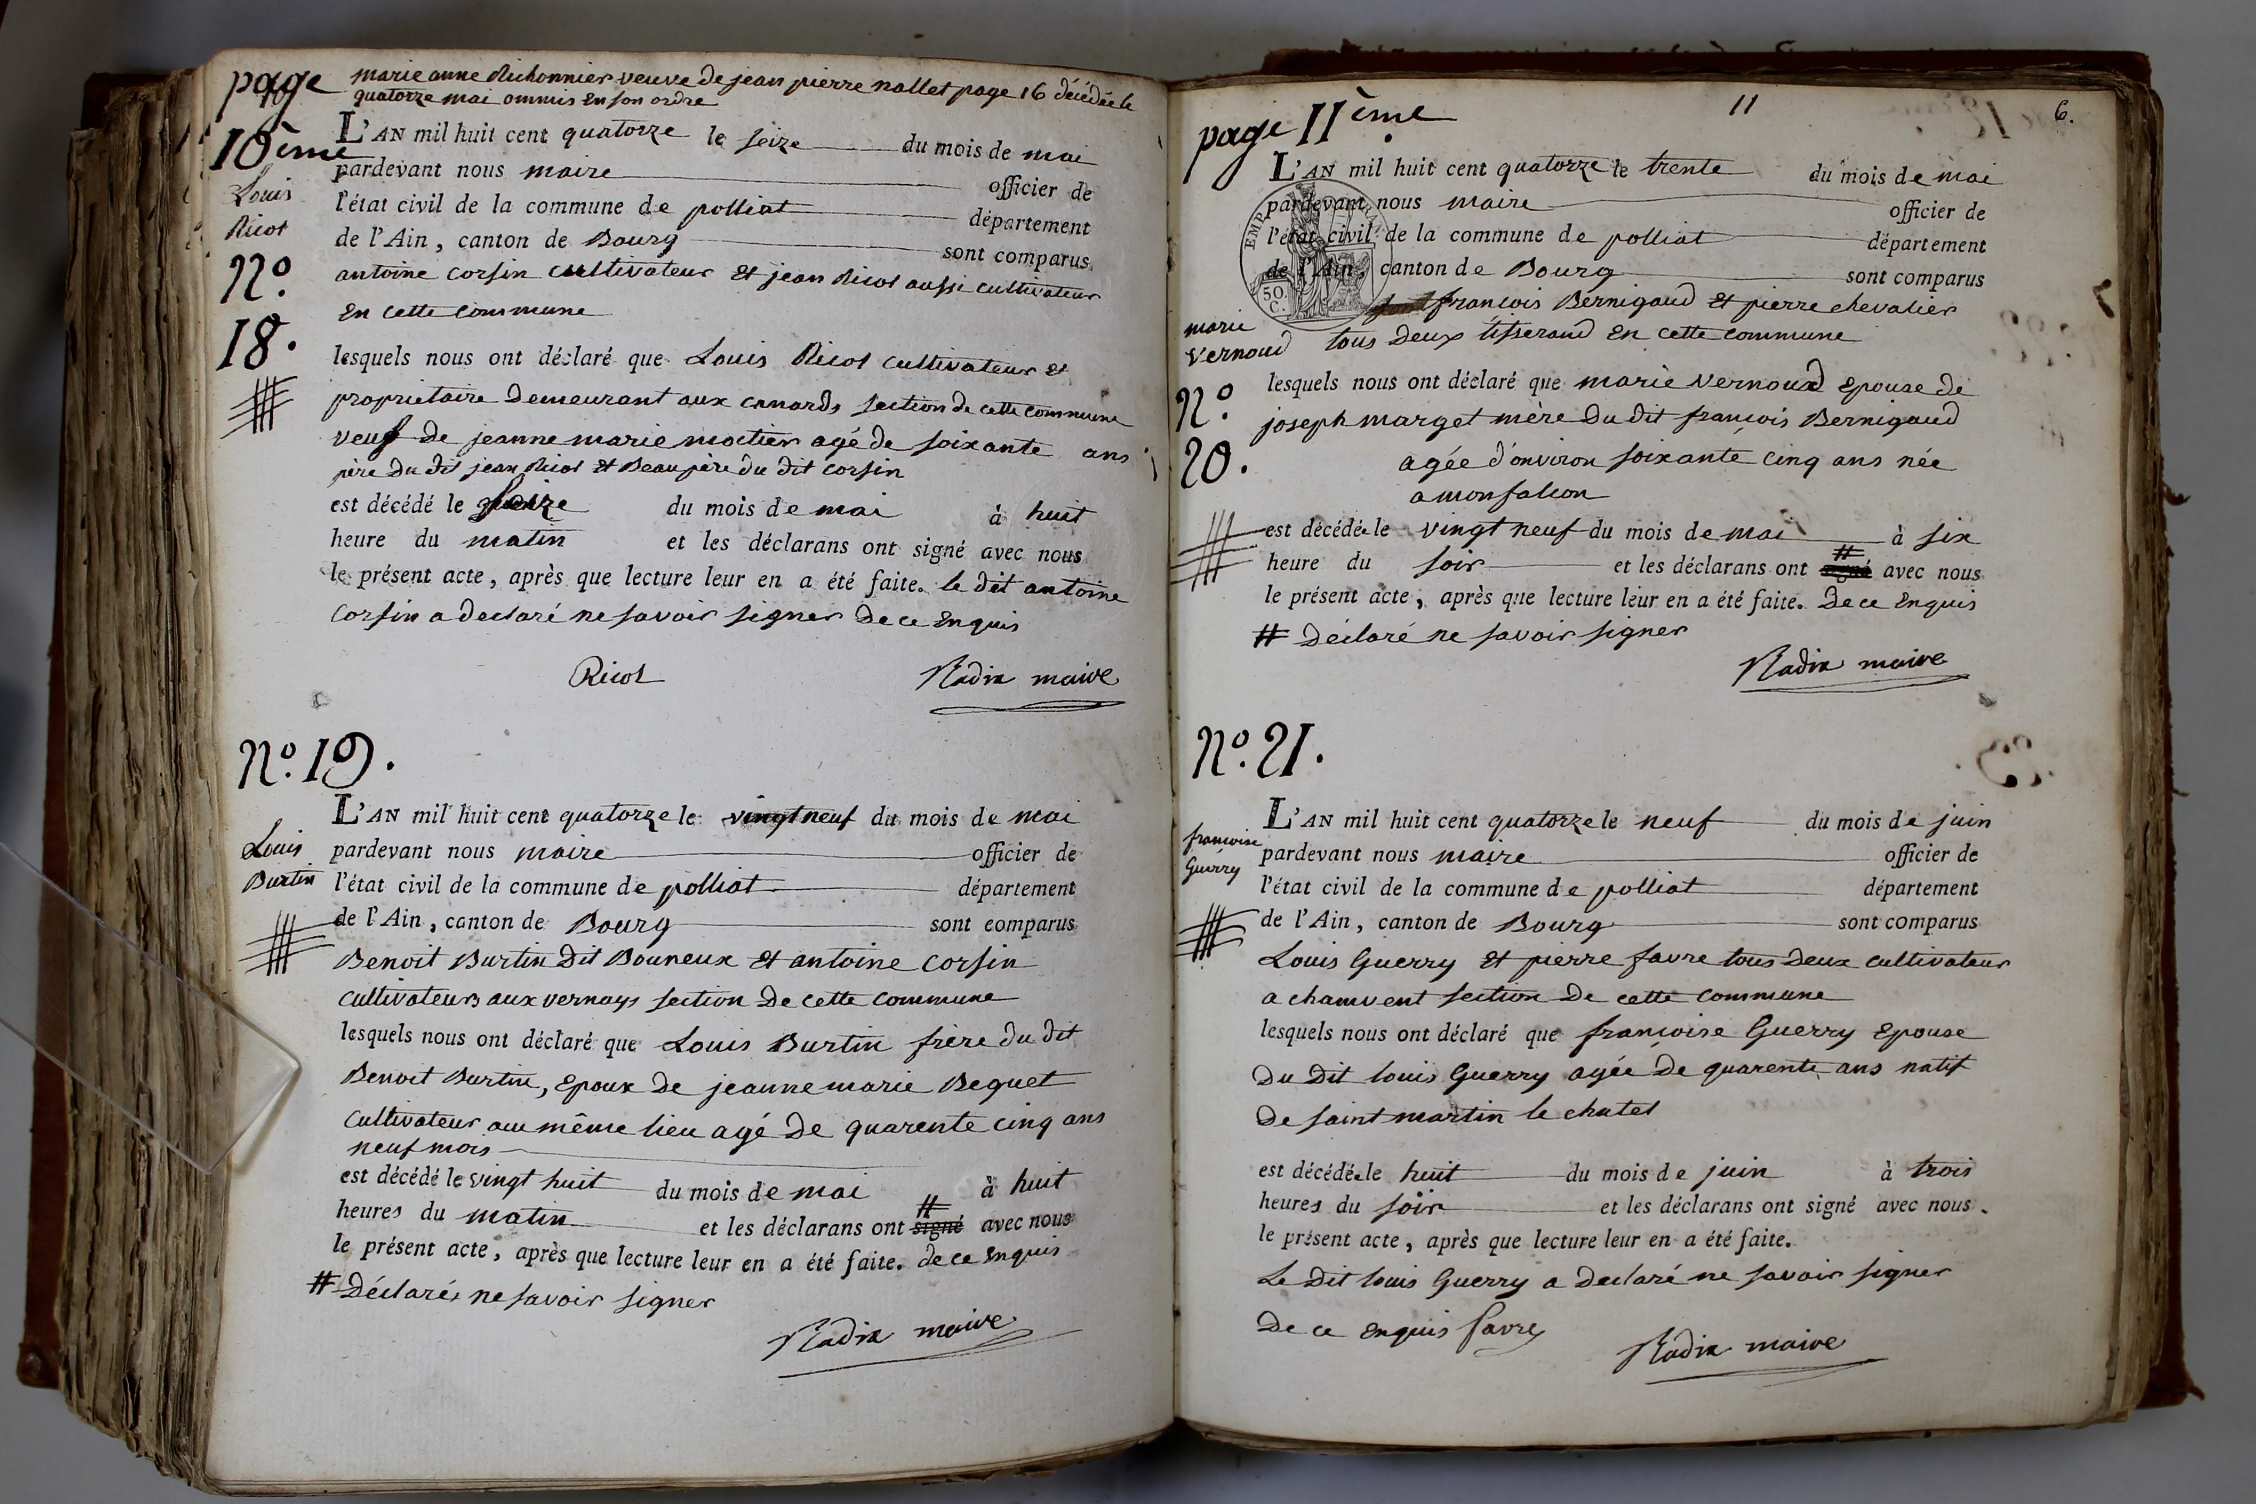 page
10ème
marie anne Richonnier veuve de jean pierre nallet page 16 décédée le
quatorze mai ommis En son ordre
L'AN mil huit cent quatorze le seize du mois de mai
pardevant nous maire officier de
l'état civil de la commune de polliat département
de l'Ain, canton de Bourg sont comparus
Louis
Ricol
N.°
18.
antoine corsin cultivateur Et jean Ricol aussi cultivateur
En cette commune
lesquels nous ont déclaré que Louis Ricol cultivateur Et
proprietaire Demeurant aux canards section de cette commune
veuf de jeanne marie moctier agé de soixante ans
père du dit jean Ricol Et Beau père du dit corsin
est décédé le seize du mois de mai à huit
heure du matin et les déclarans ont signé avec nous
le présent acte, après que lecture leur en a été faite. le dit antoine
corsin a declaré ne savoir signer de ce Enquis
Ricol Nadix maire
N.° 19.
L'AN mil huit cent quatorze le vingt neuf du mois de mai
Louis
Burtin
pardevant nous maire officier de
l'état civil de la commune de polliat département
de l'Ain, canton de Bourg sont comparus
Benoit Burtin Dit Bouneux Et antoine corsin
cultivateurs aux vernays section de cette commune
lesquels nous ont déclaré que Louis Burtin frère du dit
Benoit Burtin, Epoux de jeanne marie Beguet
cultivateur au même lieu agé de quarente cinq ans
neuf mois
est décédé le vingt huit du mois de mai à huit
heures du matin et les déclarans ont # signé avec nous
le présent acte, après que lecture leur en a été faite. de ce Enquis
# Déclarés ne savoir signer
Nadix maire
page 11ème
11
6.
L'AN mil huit cent quatorze le trente du mois de mai
pardevant nous maire officier de
l'état civil de la commune de polliat département
de l'Ain, canton de Bourg sont comparus
EMP
50.
C.
françois Bernigaud Et pierre chevalier
tous deux tisserand En cette commune
marie
vernoud
N.°
20.
lesquels nous ont déclaré que marie vernoud Epouse de
joseph marget mère du dit françois Bernigaud
agée d'environ soixante cinq ans née
a monfalcon
est décédée le vingt neuf du mois de mai à six
heure du soir et les déclarans ont # signé avec nous
le présent acte, après que lecture leur en a été faite. de ce Enquis
# Déclaré ne savoir signer
Nadix maire
N.° 21.
L'AN mil huit cent quatorze le neuf du mois de juin
françoise
Guerry
pardevant nous maire officier de
l'état civil de la commune de polliat département
de l'Ain, canton de Bourg sont comparus
Louis Guerry Et pierre favre tous deux cultivateur
a chamvent section De cette commune
lesquels nous ont déclaré que françoise Guerry Epouse
Du Dit louis Guerry agée De quarente ans natif
De saint martin le chatel
est décédée le huit du mois de juin à trois
heures du soir et les déclarans ont signé avec nous
le présent acte, après que lecture leur en a été faite.
Le Dit louis Guerry a declaré ne savoir signer
De ce Enquis favre
Nadix maire